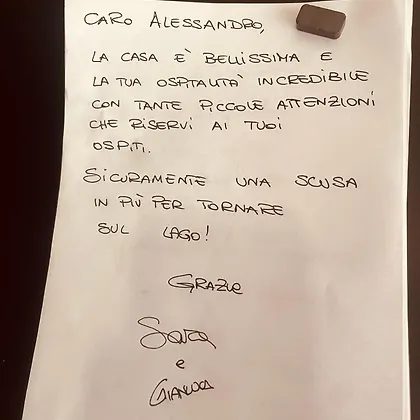 CARO ALESSANDRO,
LA CASA E' BELLISSIMA E
LA TUA OSPITALITÀ INCREDIBILE
CON TANTE PICCOLE ATTENZIONI
CHE RISERVI AI TUOI
OSPITI.
SICURAMENTE UNA SCUSA
IN PIÙ PER TORNARE
SUL LAGO!
GRAZIE
SARA
E
GIANLUCA